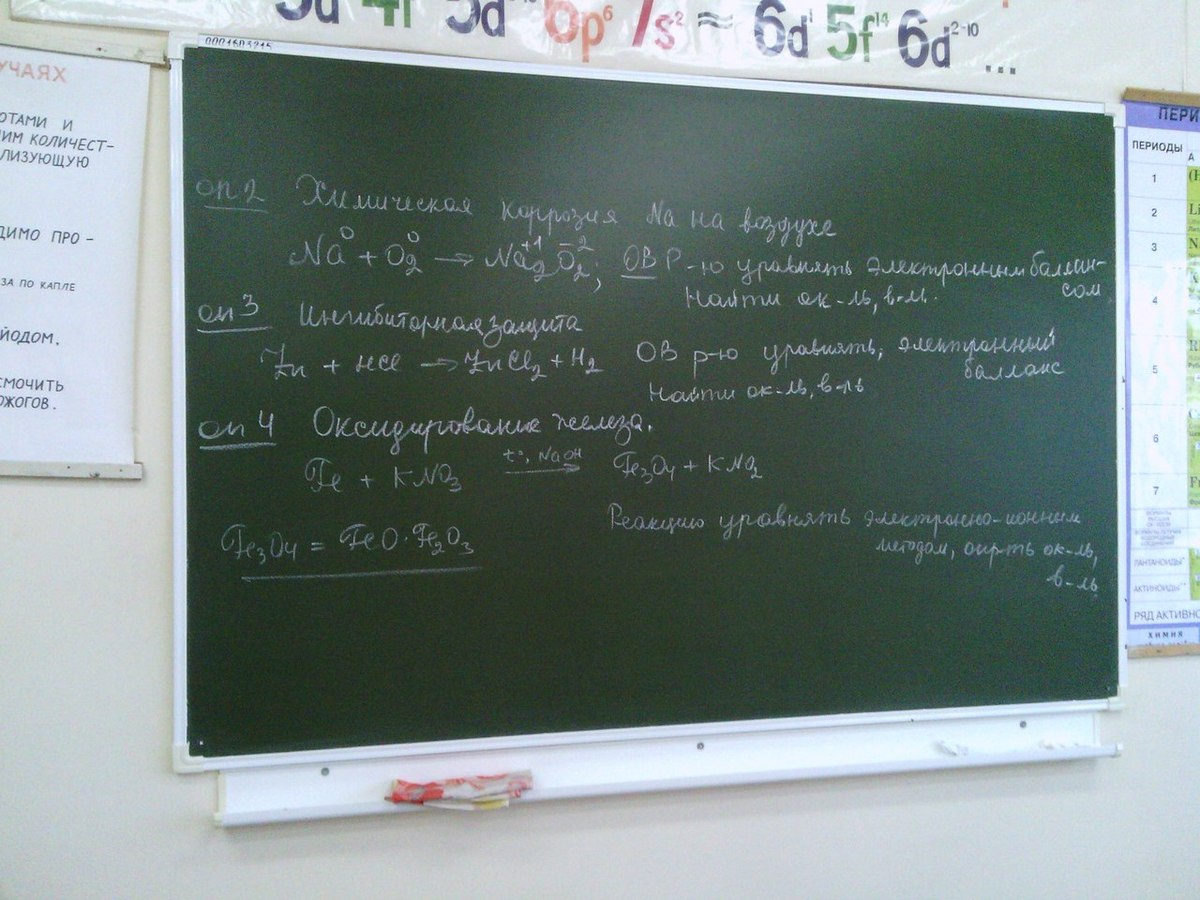 5d 4f 5d 6p⁶ 7s² ≈ 6d¹ 5f¹⁴ 6d²⁻¹⁰ ...
0001603215
УЧАЯХ
ОТАМИ И
ИМ КОЛИЧЕСТ-
ЛИЗУЮЩУЮ
ДИМО ПРО -
ЗА ПО КАПЛЕ
ЙОДОМ,
СМОЧИТЬ
ОЖОГОВ.
оп 2 Химическая коррозия Na на воздухе
Na⁰ + O₂⁰ → Na₂⁺¹O₂⁻²; ОВ Р-ю уравнять электронным баллан-
сом.
Найти ок-ль, в-ль.
оп 3 Ингибиторная защита
Zn + HCl → ZnCl₂ + H₂ ОВ р-ю уравнять, электронный
балланс
Найти ок-ль, в-ль
оп 4 Оксидирование железа.
Fe + KNO₃ t°, NaOH → Fe₃O₄ + KNO₂
Реакцию уравнять электронно-ионным
методом, опр-ть ок-ль,
в-ль
Fe₃O₄ = FeO·Fe₂O₃
ПЕРИ
ПЕРИОДЫ
А
1
2
Li
3
4
5
6
7
ЛАНТАНОИДЫ*
АКТИНОИДЫ**
РЯД АКТИВНО
ХИМИЯ